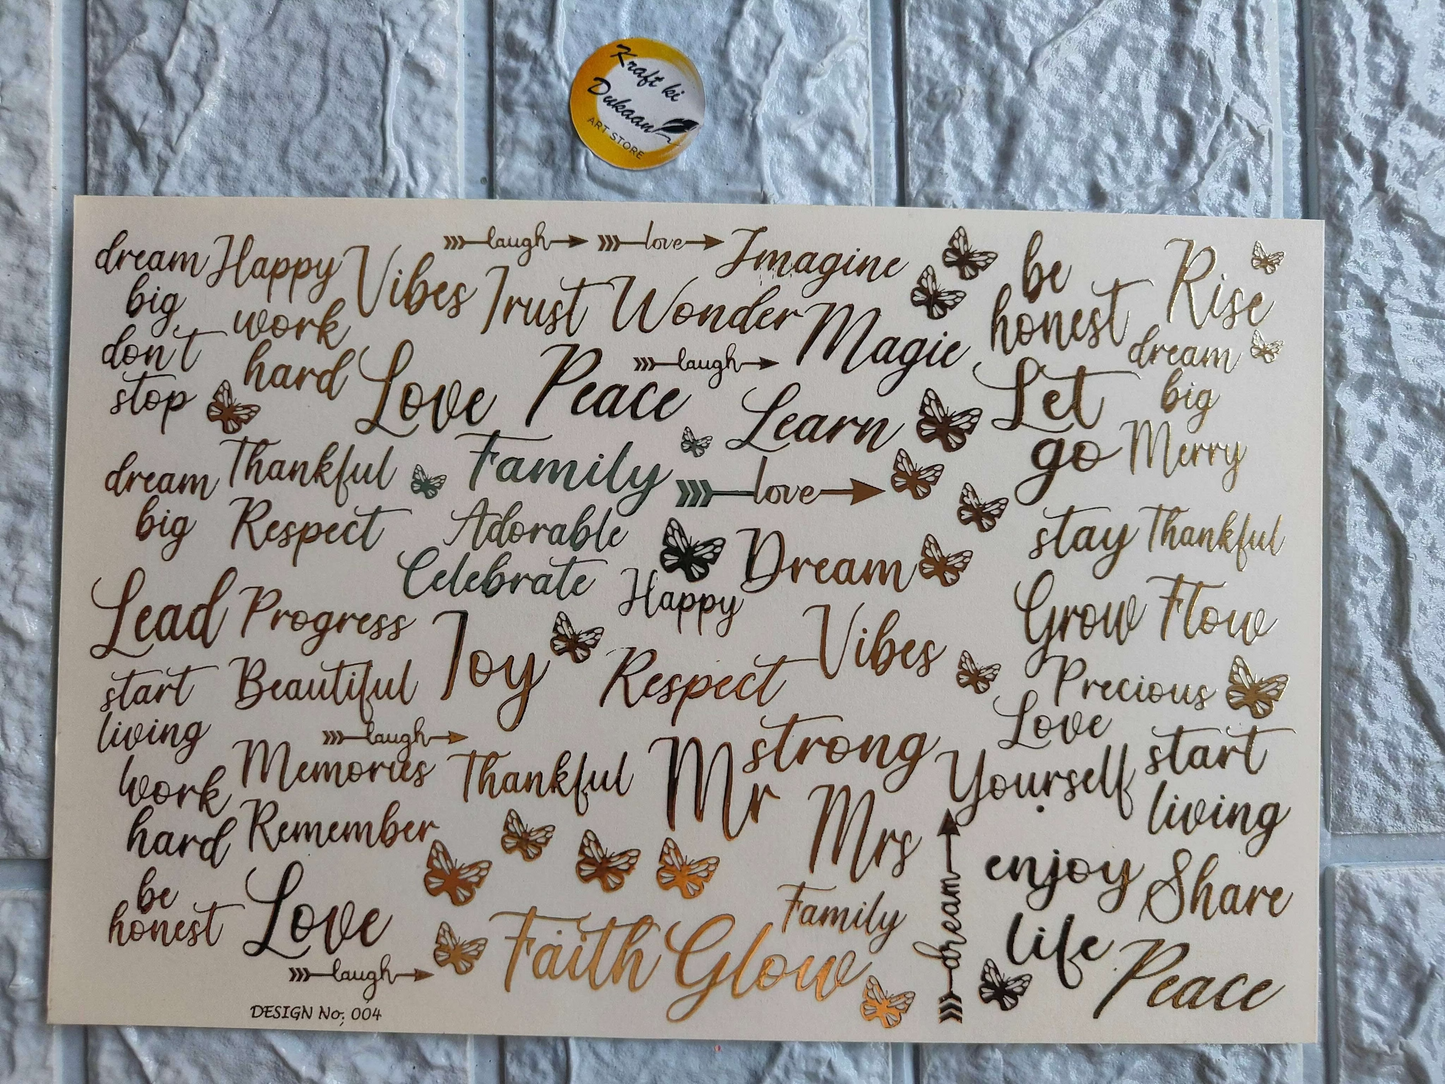 Kraft ki
Dukaan
ART STORE
dream
big
don't
stop
Happy
Vibes
laugh
love
Imagine
be
honest
Rise
work
hard
Trust
Wonder
Magic
laugh
dream
big
Love
Peace
Learn
Let
go
Merry
dream
big
Thankful
Family
love
Respect
Adorable
Celebrate
Happy
Dream
stay
Thankful
Lead
Progress
Joy
Vibes
Grow
Flow
start
living
Beautiful
Respect
Precious
Love
Yourself
laugh
Memories
Thankful
Mr
strong
start
living
work
hard
Remember
Mrs
enjoy
life
Share
be
honest
Love
laugh
Faith
Glow
Family
dream
Peace
DESIGN No; 004